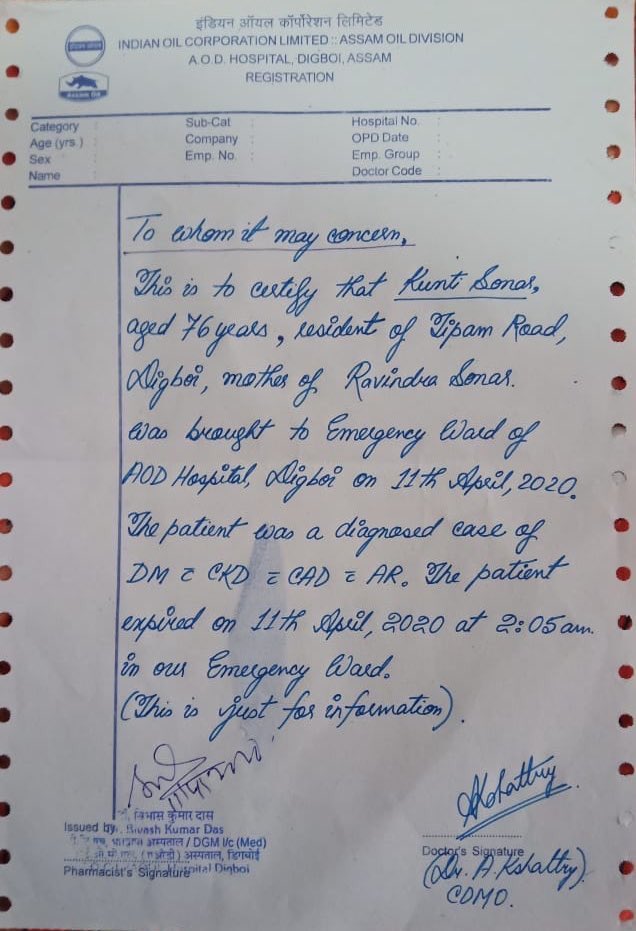 इंडियन ऑयल कॉर्पोरेशन लिमिटेड
INDIAN OIL CORPORATION LIMITED :: ASSAM OIL DIVISION
A.O.D. HOSPITAL, DIGBOI, ASSAM
REGISTRATION
Assam Oil
Category : Sub-Cat : Hospital No. :
Age (yrs.) : Company : OPD Date :
Sex : Emp. No. : Emp. Group :
Name : Doctor Code :
To whom it may concern,
This is to certify that Kunti Sonar,
aged 76 years, resident of Tipam Road,
Digboi, mother of Ravindra Sonar.
was brought to Emergency Ward of
AOD Hospital, Digboi on 11th April, 2020.
The patient was a diagnosed case of
DM c̄ CKD c̄ CAD c̄ AR. The patient
expired on 11th April, 2020 at 2:05am.
in our Emergency Ward.
(This is just for information).
AKshattry
बिभास कुमार दास
Issued by Bivash Kumar Das
अस्पताल / DGM I/c (Med)
अस्पताल, डिगबोई
Pharmacist's Signature Hospital Digboi
Doctor's Signature
(Dr. A. Kshattry).
CDMO.